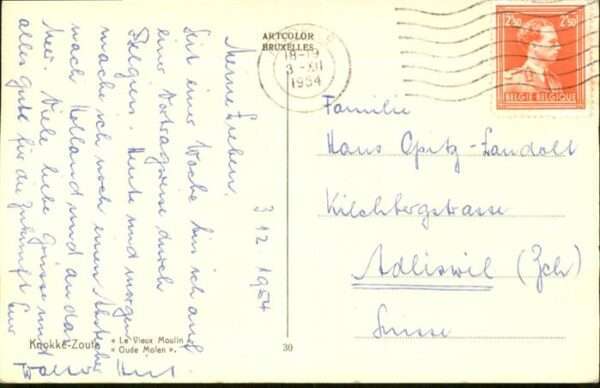 ARTCOLOR
BRUXELLES
18-19
3-XII
1954
2F50 2F50
BELGIE-BELGIQUE
3.12.1954
Meine Lieben.
Seit einer Woche bin ich auf
einer Vortragsreise durch
Belgien. Heute und morgen
mache ich noch einen Abstecher
nach Holland und an das
Meer. Viele liebe Grüsse und
alles gute für die Zukunft Euer
Familie
Hans Opitz-Landolt
Kilchbergstrasse
Adliswil (Zch)
Suisse
Knokke-Zoute
« Le Vieux Moulin
« Oude Molen ».
30